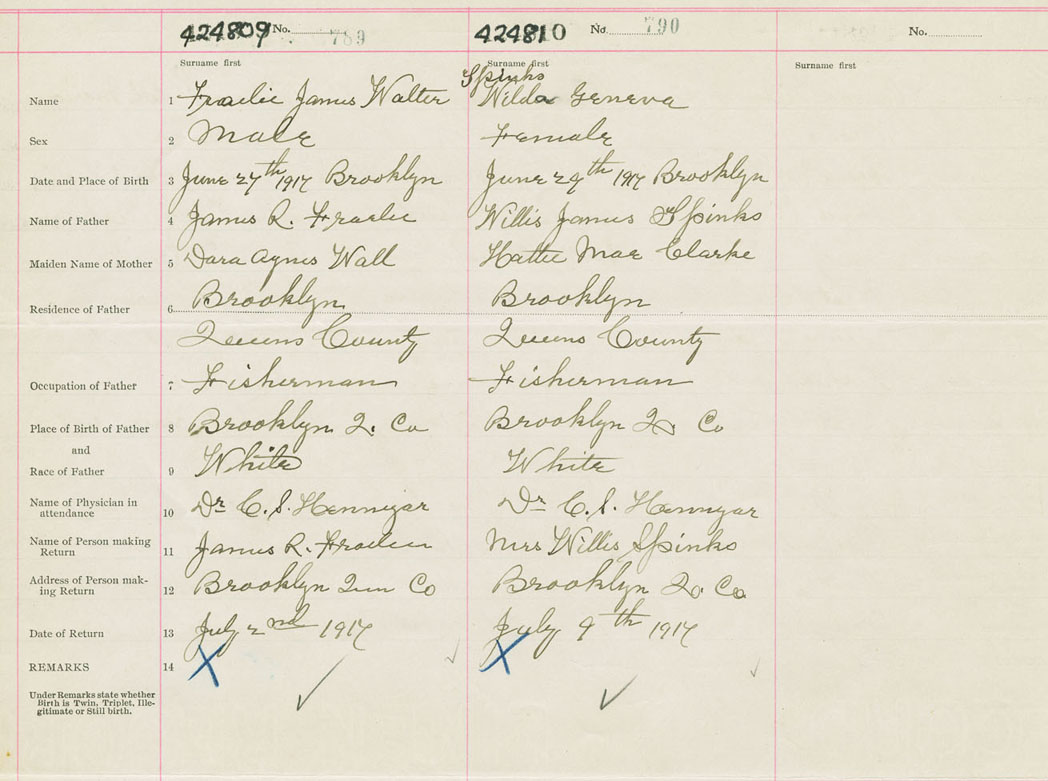 424809 No. 789
424810 No. 790
No.
Surname first
Surname first
Surname first
Name 1 Fraelic James Walter
Spinks
Wilda Geneva
Sex 2 Male Female
Date and Place of Birth 3 June 27th 1917 Brooklyn June 29th 1917 Brooklyn
Name of Father 4 James R. Fraelic Willis James Spinks
Maiden Name of Mother 5 Dara Agnes Wall Hattie Mae Clarke
Residence of Father 6 Brooklyn Brooklyn
Queens County Queens County
Occupation of Father 7 Fisherman Fisherman
Place of Birth of Father 8 Brooklyn Q. Co Brooklyn Q. Co
and
Race of Father 9 White White
Name of Physician in
attendance 10 Dr C. S. Hennigar Dr C. S. Hennigar
Name of Person making
Return 11 James R. Fraelic Mrs Willis Spinks
Address of Person mak-
ing Return 12 Brooklyn Co Brooklyn Q. Co
Date of Return 13 July 2nd 1917 July 9th 1917
REMARKS 14 X X
Under Remarks state whether
Birth is Twin, Triplet, Ille-
gitimate or Still birth.